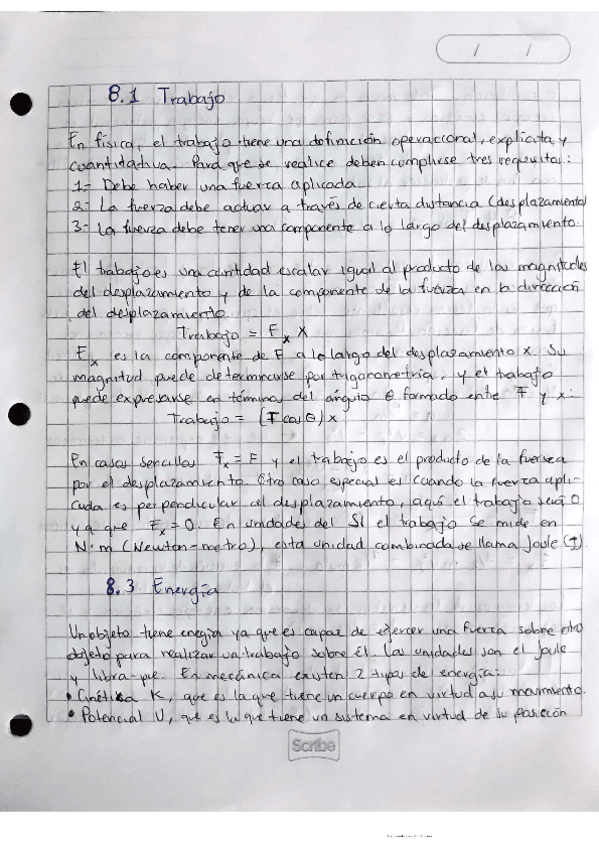 / /
8.1 Trabajo
En física, el trabajo tiene una definición operacional, explícita y
cuantitativa. Para que se realice deben cumplirse tres requisitos:
1- Debe haber una fuerza aplicada
2- La fuerza debe actuar a través de cierta distancia (desplazamiento)
3- La fuerza debe tener una componente a lo largo del desplazamiento.
El trabajo es una cantidad escalar igual al producto de las magnitudes
del desplazamiento y de la componente de la fuerza en la dirección
del desplazamiento.
Trabajo = Fₓ X
Fₓ es la componente de F a lo largo del desplazamiento x. Su
magnitud puede determinarse por trigonometría, y el trabajo
puede expresarse en términos del ángulo θ formado entre F y x:
Trabajo = (F cos θ) x
En casos sencillos Fₓ = F y el trabajo es el producto de la fuerza
por el desplazamiento. Otro caso especial es cuando la fuerza apli-
cada es perpendicular al desplazamiento, aquí el trabajo será 0
ya que Fₓ = 0. En unidades del SI el trabajo se mide en
N·m (Newton-metro), esta unidad combinada se llama Joule (J).
8.3 Energía
Un objeto tiene enegía ya que es capaz de ejercer una fuerza sobre otro
objeto para realizar un trabajo sobre él. Las unidades son el Joule
y libra-pie. En mecánica existen 2 tipos de energía:
• Cinética K, que es la que tiene un cuerpo en virtud a su movimiento.
• Potencial U, que es la que tiene un sistema en virtud de su posición
Scribe